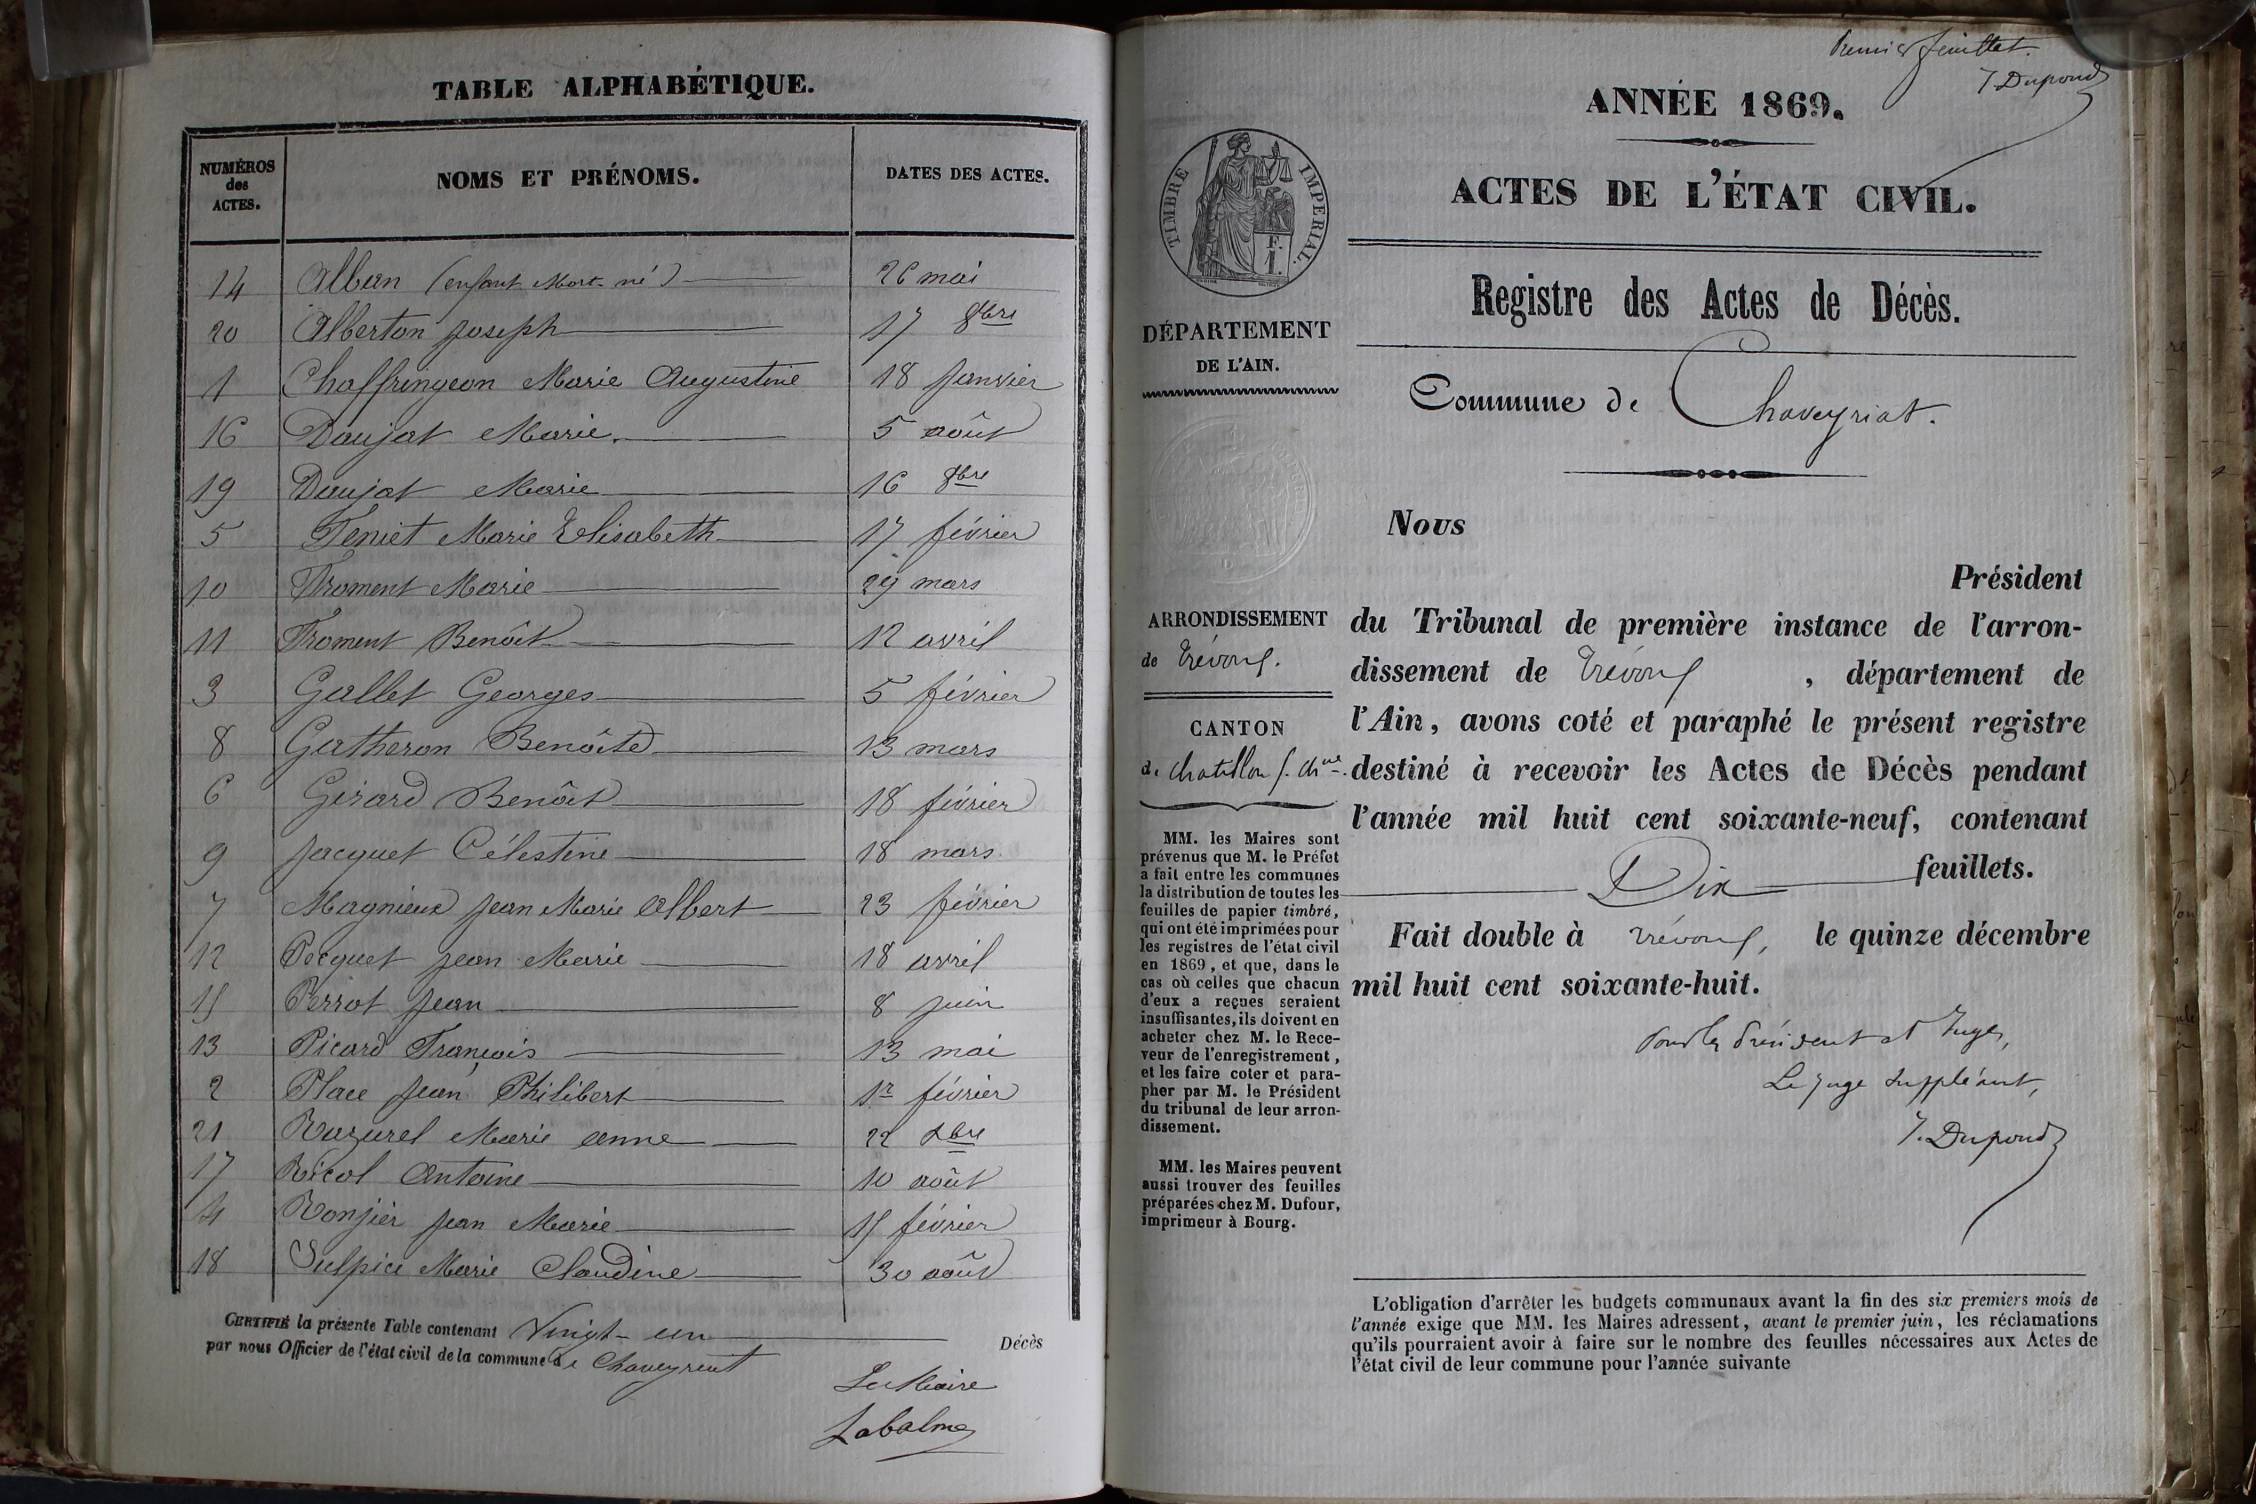 TABLE ALPHABÉTIQUE.
NUMÉROS des ACTES. NOMS ET PRÉNOMS. DATES DES ACTES.
14 Alban (enfant Mort-né) 26 mai
20 Alberton Joseph 17 8bre
1 Chaffringeon Marie Augustine 18 Janvier
16 Daujat Marie. 5 août
19 Daujat Marie 16 8bre
5 Feniet Marie Elisabeth 17 février
10 Froment Marie 29 mars
11 Froment Benôit 12 avril
3 Gallet Georges 5 février
8 Gatheron Benôite 13 mars
6 Girard Benôit 18 février
9 Jacquet Célestine 18 mars
7 Magnieux Jean Marie Albert 23 février
12 Pecquet Jean Marie 18 avril
15 Perrot Jean 8 juin
13 Picard François 13 mai
2 Place Jean Philibert 1r février
21 Razurel Marie Anne 22 Xbre
17 Ricol Antoine 10 août
4 Ronjier Jean Marie 15 février
18 Sulpice Marie Claudine 30 août
CERTIFIÉ la présente Table contenant Vingt-un Décès
par nous Officier de l'état civil de la commune de Chaveyriat
Le Maire
Labalme
Premier feuillet.
J. Dupond
ANNÉE 1869.
ACTES DE L'ÉTAT CIVIL.
TIMBRE IMPERIAL.
F.
1.
Registre des Actes de Décès.
DÉPARTEMENT
DE L'AIN.
Commune de Chaveyriat.
Nous
Président
ARRONDISSEMENT
de Trévoux.
CANTON
de Chatillon s. Chne.
MM. les Maires sont
prévenus que M. le Préfet
a fait entre les communes
la distribution de toutes les
feuilles de papier timbré,
qui ont été imprimées pour
les registres de l'état civil
en 1869, et que, dans le
cas où celles que chacun
d'eux a reçues seraient
insuffisantes, ils doivent en
acheter chez M. le Rece-
veur de l'enregistrement,
et les faire coter et para-
pher par M. le Président
du tribunal de leur arron-
dissement.
MM. les Maires peuvent
aussi trouver des feuilles
préparées chez M. Dufour,
imprimeur à Bourg.
du Tribunal de première instance de l'arron-
dissement de Trévoux, département de
l'Ain, avons coté et paraphé le présent registre
destiné à recevoir les Actes de Décès pendant
l'année mil huit cent soixante-neuf, contenant
Dix feuillets.
Fait double à Trévoux, le quinze décembre
mil huit cent soixante-huit.
Pour les Président et Juges,
Le Juge Suppléant,
J. Dupond
L'obligation d'arrêter les budgets communaux avant la fin des six premiers mois de
l'année exige que MM. les Maires adressent, avant le premier juin, les réclamations
qu'ils pourraient avoir à faire sur le nombre des feuilles nécessaires aux Actes de
l'état civil de leur commune pour l'année suivante